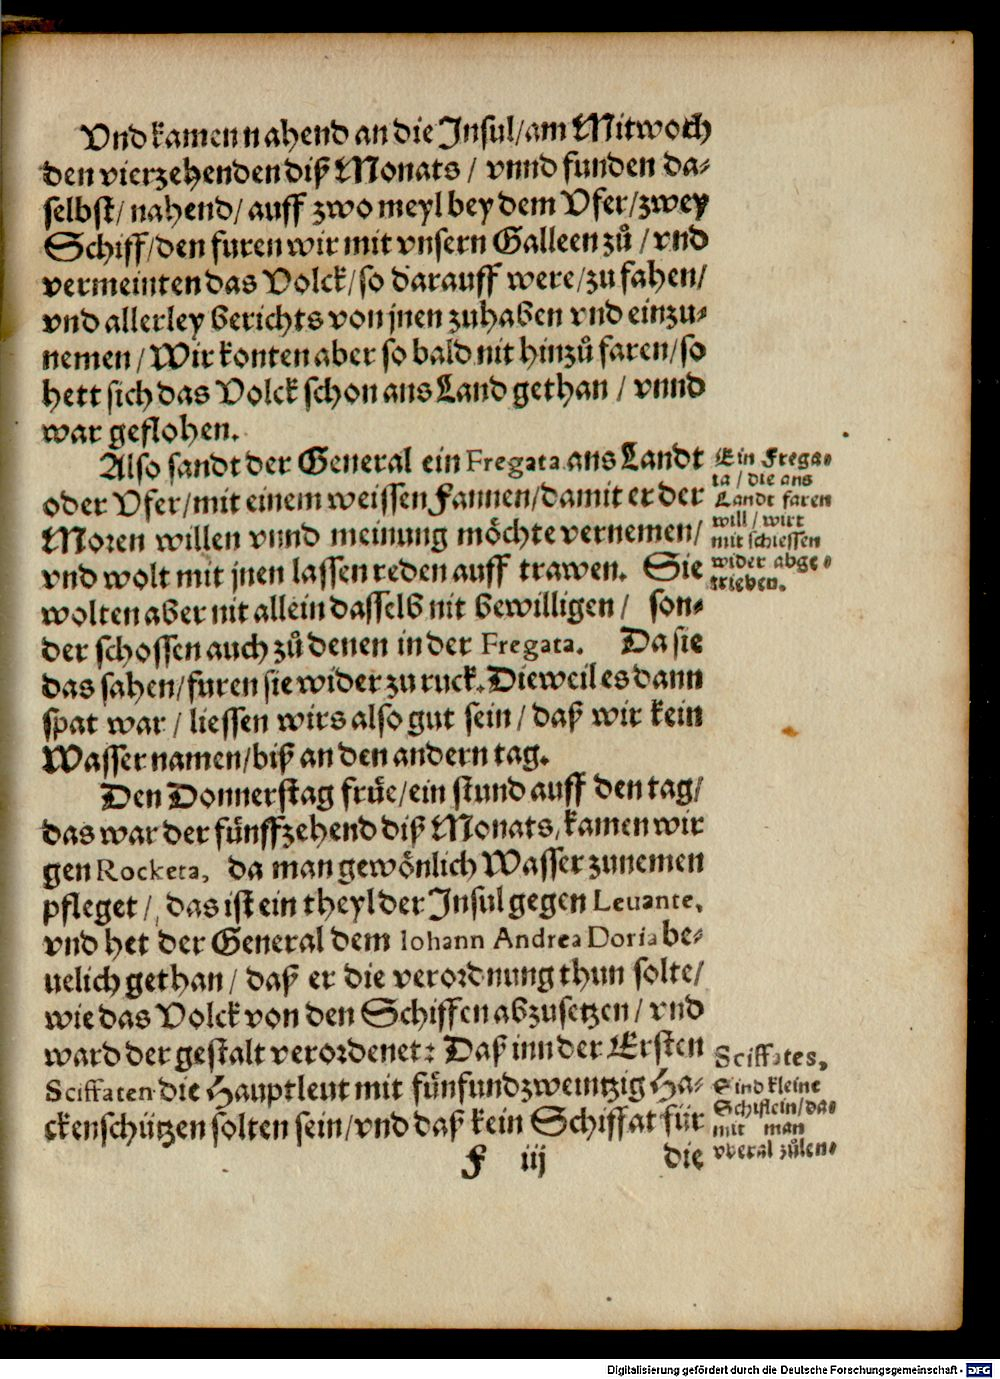 Vnd kamen nahend an die Insul/am Mitwoch
den vierzehenden diß Monats / vnnd funden da⸗
selbst/ nahend/ auff zwo meyl bey dem Vfer/zwey
Schiff/den furen wir mit vnsern Galleen zů / vnd
vermeinten das Volck/so darauff were/zu fahen/
vnd allerley berichts von jnen zuhaben vnd einzu⸗
nemen / Wir konten aber so bald nit hinzů faren/so
hett sich das Volck schon ans Land gethan / vnnd
war geflohen.
Also sandt der General ein Fregata ans Landt
oder Vfer/mit einem weissen Fannen/damit er der
Moren willen vnnd meinung möchte vernemen/
vnd wolt mit jnen lassen reden auff trawen. Sie
wolten aber nit allein dasselb nit bewilligen / son⸗
der schossen auch zů denen in der Fregata. Da sie
das sahen/furen sie wider zu ruck. Dieweil es dann
spat war / liessen wirs also gut sein / daß wir kein
Wasser namen/biß an den andern tag.
Ein Frega⸗
ta / die ans
Landt faren
will / wirt
mit schiessen
wider abge⸗
trieben.
Den Donnerstag früe/ein stund auff den tag/
das war der fünffzehend diß Monats, kamen wir
gen Rocketa, da man gewönlich Wasser zunemen
pfleget /, das ist ein theyl der Insul gegen Leuante,
vnd het der General dem Iohann Andrea Doria be⸗
uelich gethan / daß er die verordnung thun solte/
wie das Volck von den Schiffen abzusetzen / vnd
ward der gestalt verordenet: Daß inn der Ersten
Sciffaten die Hauptleut mit fünfundzweintzig Ha⸗
ckenschützen solten sein/vnd daß kein Schiffat für
Sciffates,
Sind kleine
Schiflein/da⸗
mit man
vberal zůlen⸗
F iij die
Digitalisierung gefördert durch die Deutsche Forschungsgemeinschaft - DFG